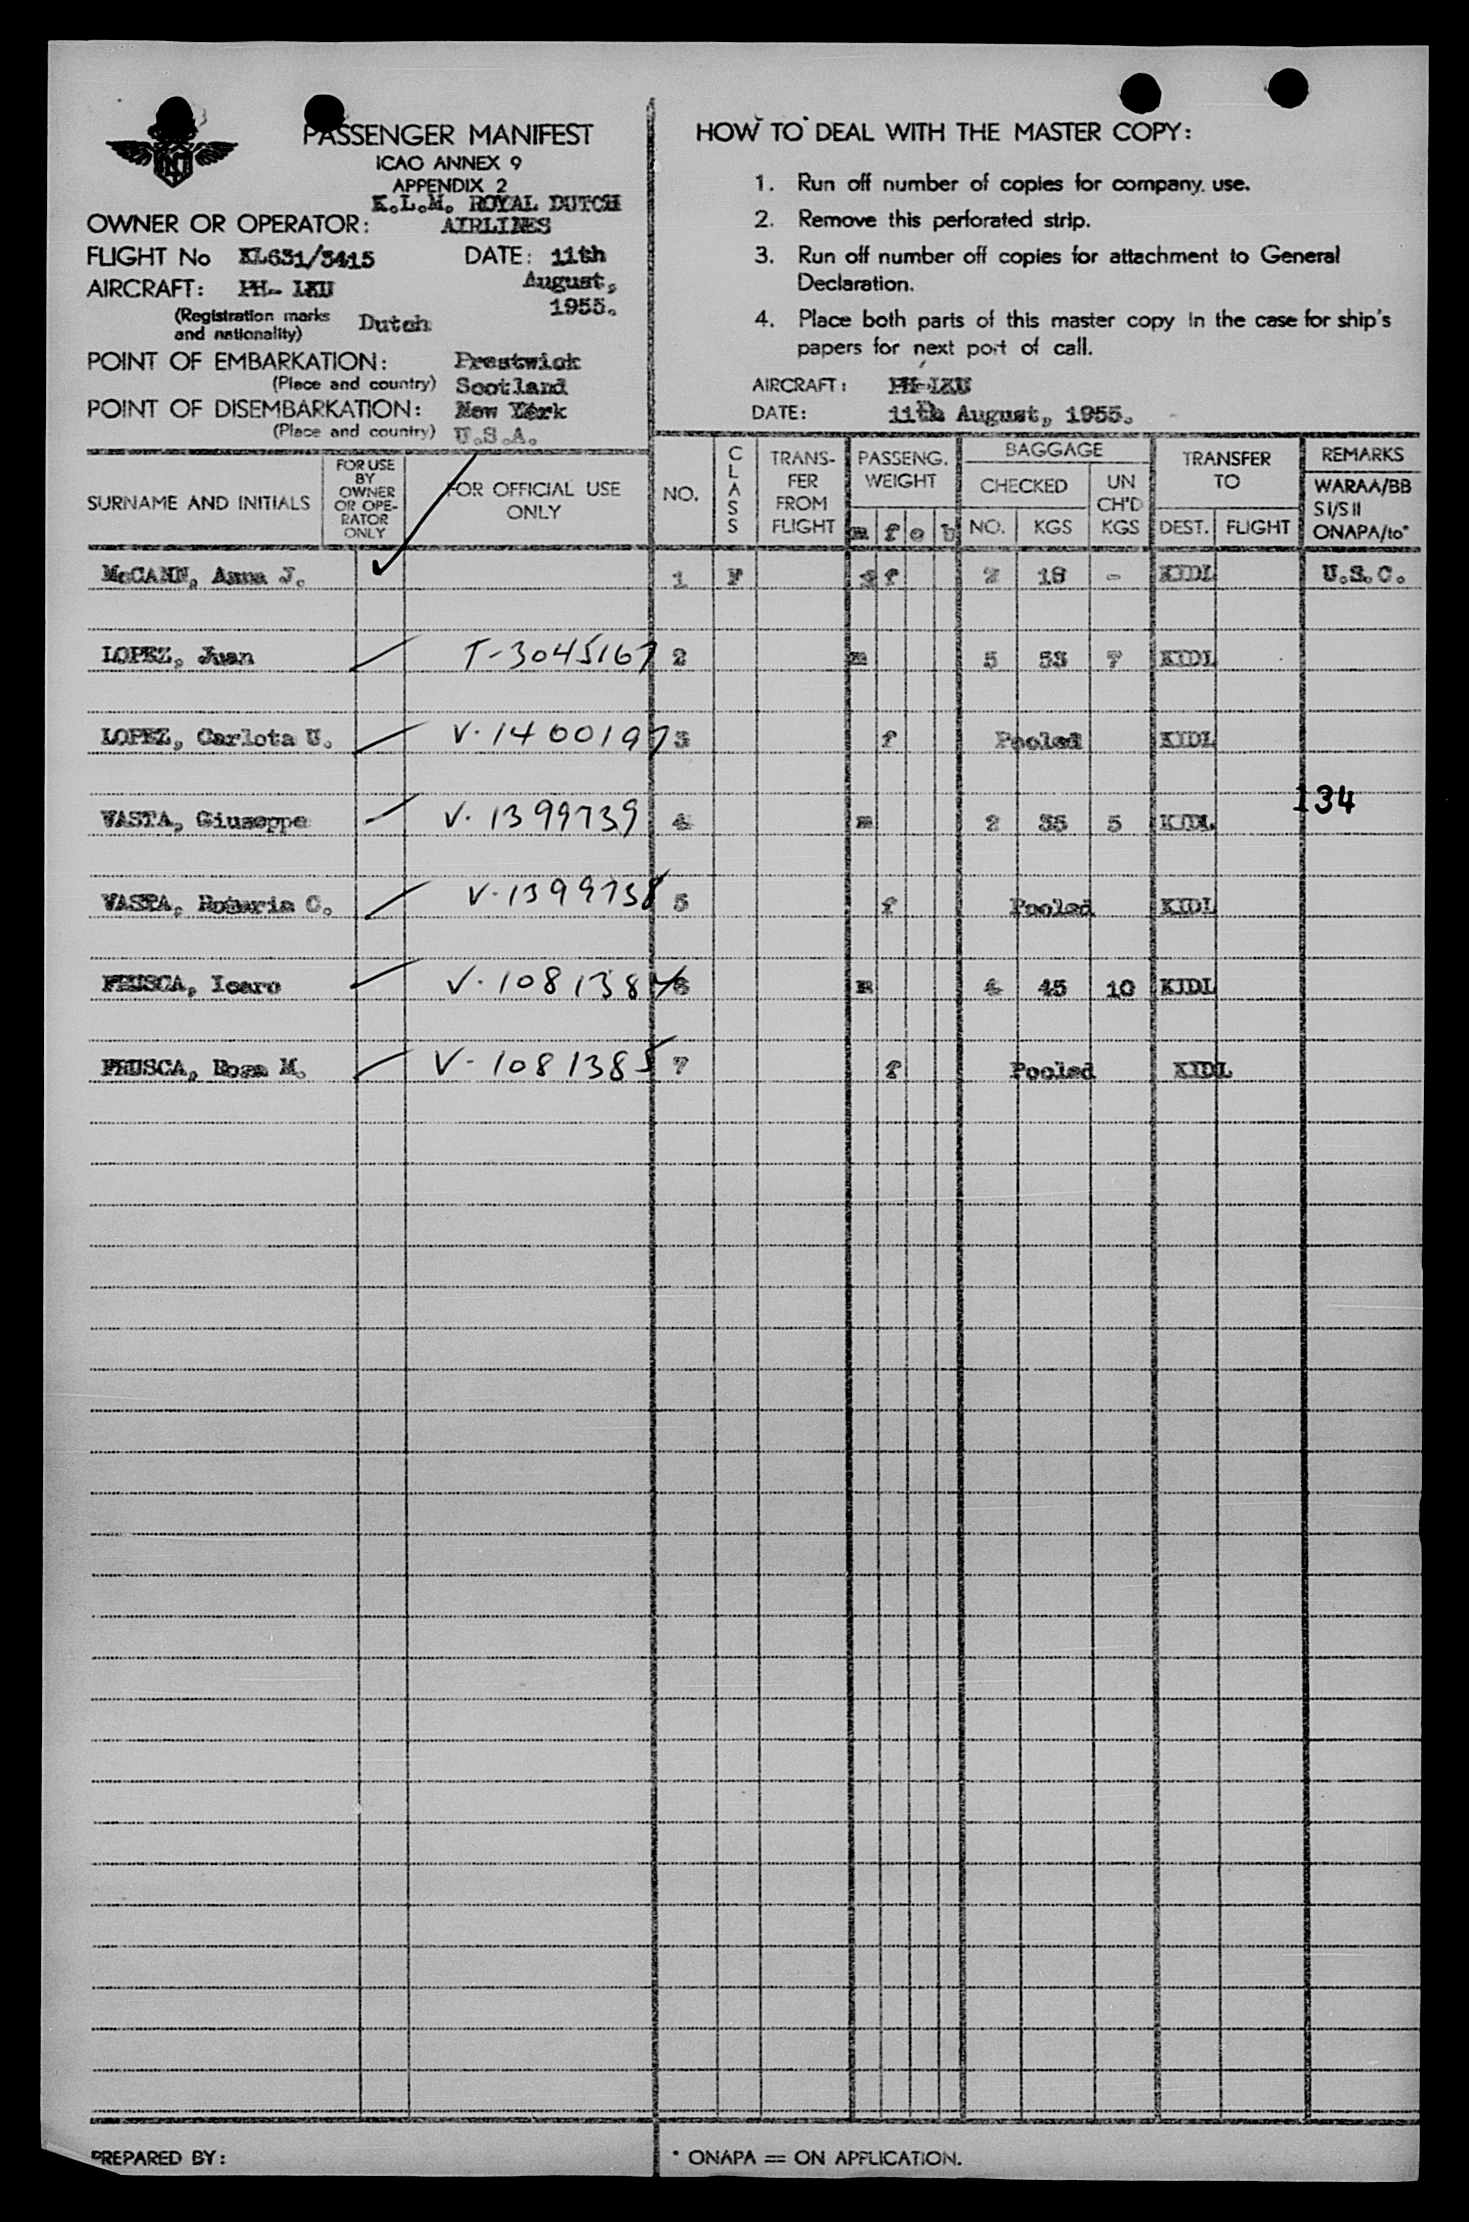 PASSENGER MANIFEST
ICAO ANNEX 9
APPENDIX 2
K.L.M. ROYAL DUTCH
OWNER OR OPERATOR: AIRLINES
FLIGHT No KL631/3415 DATE: 11th
AIRCRAFT: PH- LKU August,
1955.
(Registration marks
and nationality) Dutch
POINT OF EMBARKATION: Prestwick
(Place and country) Scotland
POINT OF DISEMBARKATION: New York
(Place and country) U.S.A.
HOW TO DEAL WITH THE MASTER COPY:
1. Run off number of copies for company. use.
2. Remove this perforated strip.
3. Run off number off copies for attachment to General
Declaration.
4. Place both parts of this master copy in the case for ship's
papers for next port of call.
AIRCRAFT: PH-LKU
DATE: 11th August, 1955.
SURNAME AND INITIALS
FOR USE
BY
OWNER
OR OPE-
RATOR
ONLY
FOR OFFICIAL USE
ONLY
NO.
CLASS
TRANS-
FER
FROM
FLIGHT
PASSENG.
WEIGHT
m f c b
BAGGAGE
CHECKED
NO. KGS
UN
CH'D
KGS
TRANSFER
TO
DEST. FLIGHT
REMARKS
WARAA/BB
SI/SII
ONAPA/to*
McCANN, Anna J. 1 F f 2 18 - KIDL U.S.C.
LOPEZ, Juan T-3045167 2 m 5 53 7 KIDL
LOPEZ, Carlota U. V-1400197 3 f Pooled KIDL
134
VASTA, Giuseppe V-1399739 4 m 2 35 5 KIDL
VASTA, C. V-1399738 5 f Pooled KIDL
FRUSCA, Icaro V-1081384 6 m 4 45 10 KIDL
FRUSCA, Rosa M. V-1081385 7 f Pooled KIDL
PREPARED BY:
* ONAPA = ON APPLICATION.